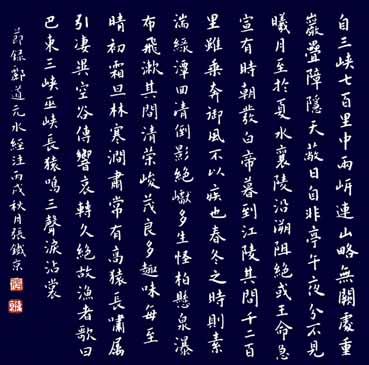 自三峽七百里中兩岍連山略無闕處重
巖疊障隱天蔽日自非亭午夜分不見
曦月至於夏水襄陵沿溯阻絕或王命急
宣有時朝發白帝暮到江陵其間千二百
里雖乘奔御風不以疾也春冬之時則素
湍綠潭回清倒影絕巘多生怪柏懸泉瀑
布飛漱其間清榮峻茂良多趣味每至
晴初霜旦林寒澗肅常有高猿長嘯屬
引凄異空谷傳響哀轉久絕故漁者歌曰
巴東三峽巫峽長猿鳴三聲淚沾裳
節錄酈道元水經注丙戌秋月張鐵京